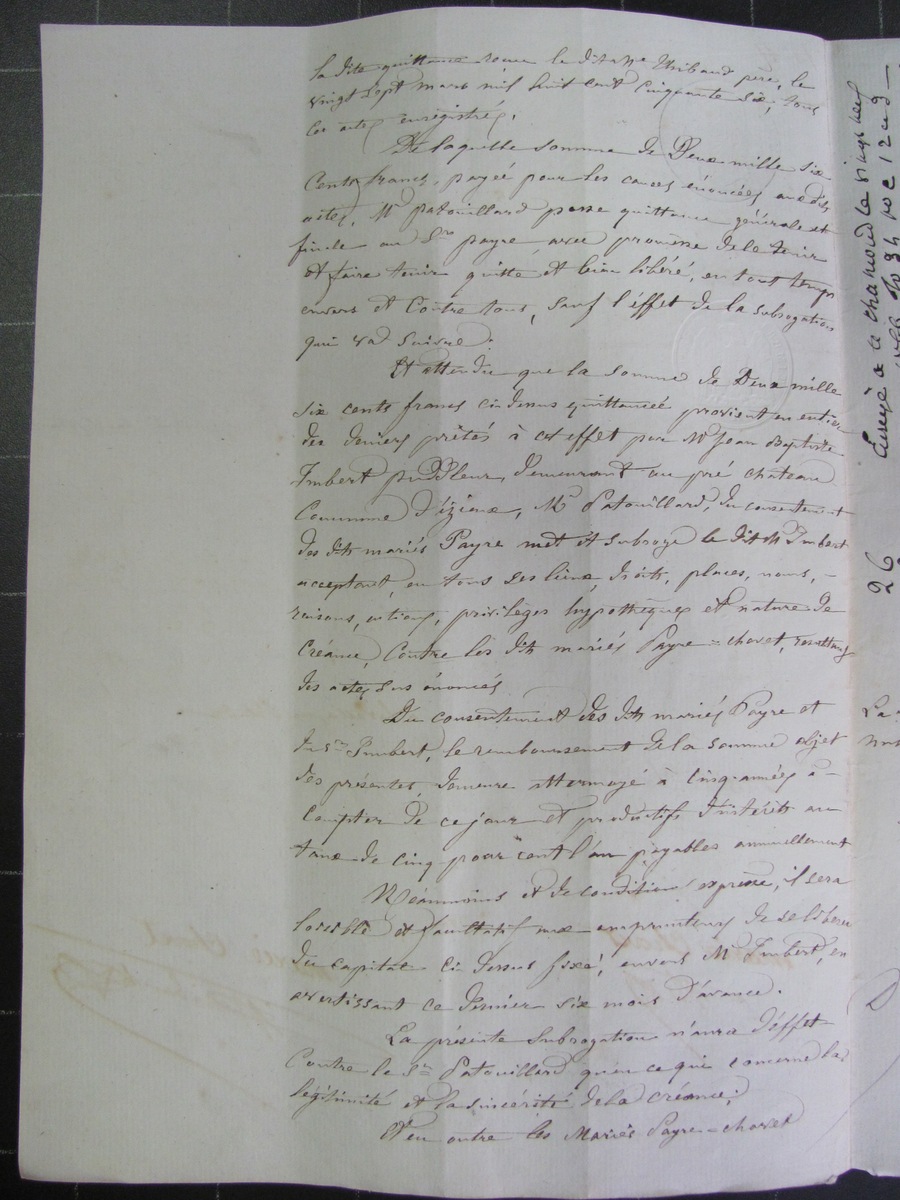 la dite quittance reçue le dit Mre Thibaud père, le
vingt sept mars mil huit cent cinquante six, tous
ces actes enregistrés.
De laquelle somme de Deux mille six
Cents francs, payée pour les causes énoncées aux dits
actes, Mr Patouillard passe quittance générale et
finale au Sr payre avec promesse de le tenir
et faire tenir quitte et bien libéré, en tout temps
envers et Contre tous, sauf l'éffet de la subrogation
qui va suivre:
Et attendu que la somme de Deux mille
six cents francs ci dessus quittancée provient en entier
des deniers prêtés à cet effet par Mr Jean Baptiste
Imbert puddleur, demeurant au pré chateau
Commune d'izieux, Mr Patouillard, du consentement
des dits mariés Payre met et subroge le dit Mr Imbert
acceptant, en tous ses lieux, droits, places, noms, -
raisons, actions, privilèges hypothèques et nature de
Créance, Contre les dits mariés Payre = chovet, resultant
des actes sus énoncés
Du consentement des dits mariés Payre et
du Sr Imbert, le remboursement de la somme objet
des présentes, demeure attermoyé à cinq années à -
Compter de ce jour et productifs d'intérêts au
taux de cinq pour cent l'an payables annuellement
Néanmoins et de condition expresse, il sera
loisible et facultatif aux emprunteurs de se libérer
du capital ci dessus fixé, envers Mr Imbert, en
avertissant ce dernier six mois d'avance.
La présente subrogation n'aura d'éffet
Contre le Sr Patouillard qu'en ce qui concerne la
légitimité et la sincérité de la créance;
Et en outre les Mariés Payre = chovet
26
La